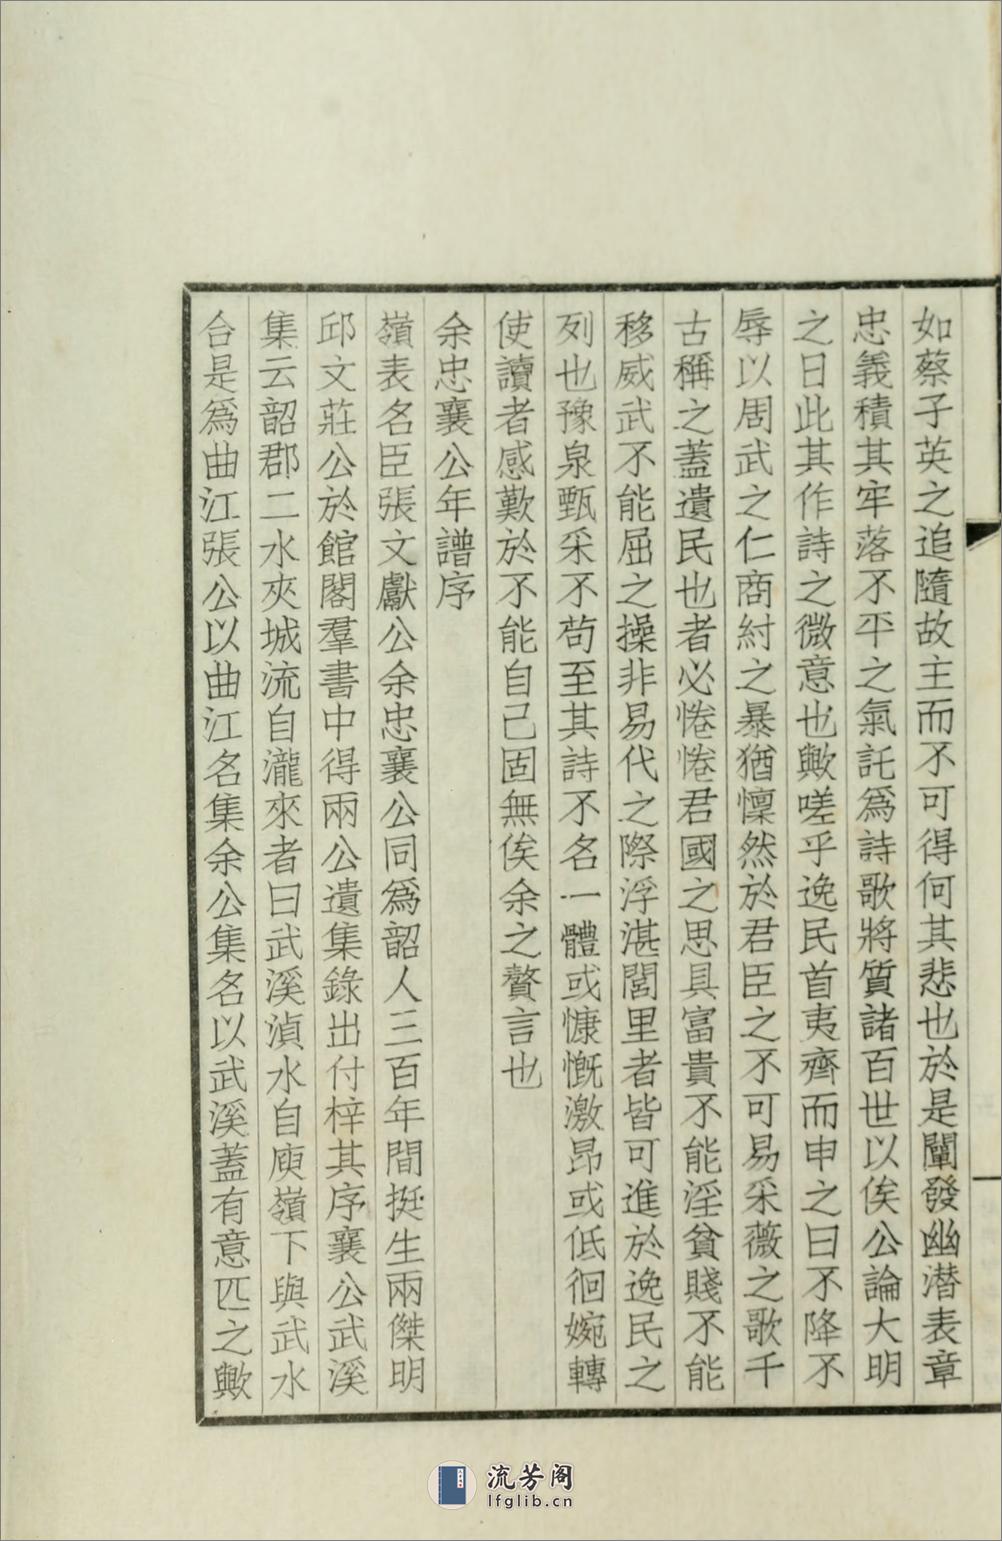 如蔡子英之追隨故主而不可得何其悲也於是闡發幽潛表章
忠義積其牢落不平之氣託爲詩歌將質諸百世以俟公論大明
之日此其作詩之微意也歟嗟乎逸民首夷齊而申之曰不降不
辱以周武之仁商紂之暴猶懍然於君臣之不可易采薇之歌千
古稱之蓋遺民也者必惓惓君國之思具富貴不能淫貧賤不能
移威武不能屈之操非易代之際浮湛閭里者皆可進於逸民之
列也豫泉甄采不苟至其詩不名一體或慷慨激昂或低徊婉轉
使讀者感歎於不能自已固無俟余之贅言也
余忠襄公年譜序
嶺表名臣張文獻公余忠襄公同爲韶人三百年間挺生兩傑明
邱文莊公於館閣羣書中得兩公遺集錄出付梓其序襄公武溪
集云韶郡二水夾城流自瀧來者曰武溪湞水自庾嶺下與武水
合是爲曲江張公以曲江名集余公集名以武溪蓋有意匹之歟
流芳阁
lfglib.cn